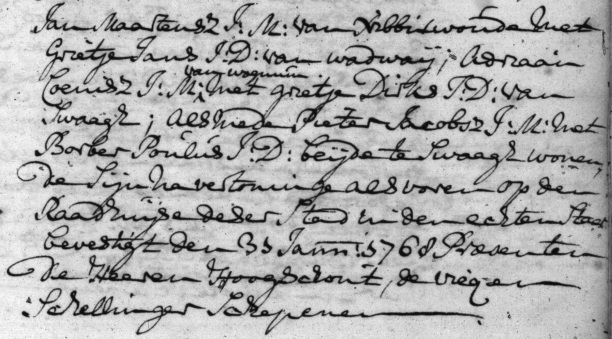 Jan Maartensz J: M: van Nibbixwoude Met
Grietje Jans J: D: van wadwaij; Adriaan
van wognum
Coensz J: M: Met grietje Dirks J: D: van
Swaagh; als Mede Pieter Jacobsz J: M: Met
Borber Poulus J: D: beijde te Swaagh wonen,
de Sijn Na vertoninge als voren op den
Raadhuijse deser Stad in den echten Staat
bevestigt den 31 Jann: 1768 Præsenten
de Heeren Hoogschout, de vicq en
Schellinger Schepenen